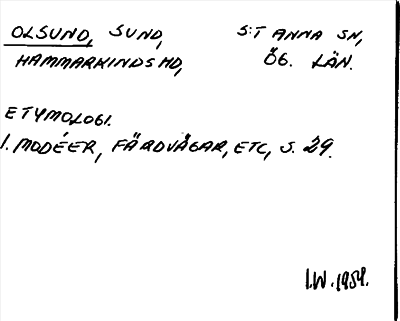 OLSUND, SUND, S:T ANNA SN,
HAMMARKINDS HD, ÖG. LÄN.
ETYMOLOGI.
I. MODÉER, FÄRDVÄGAR, ETC, S. 29.
I.W. 1959.